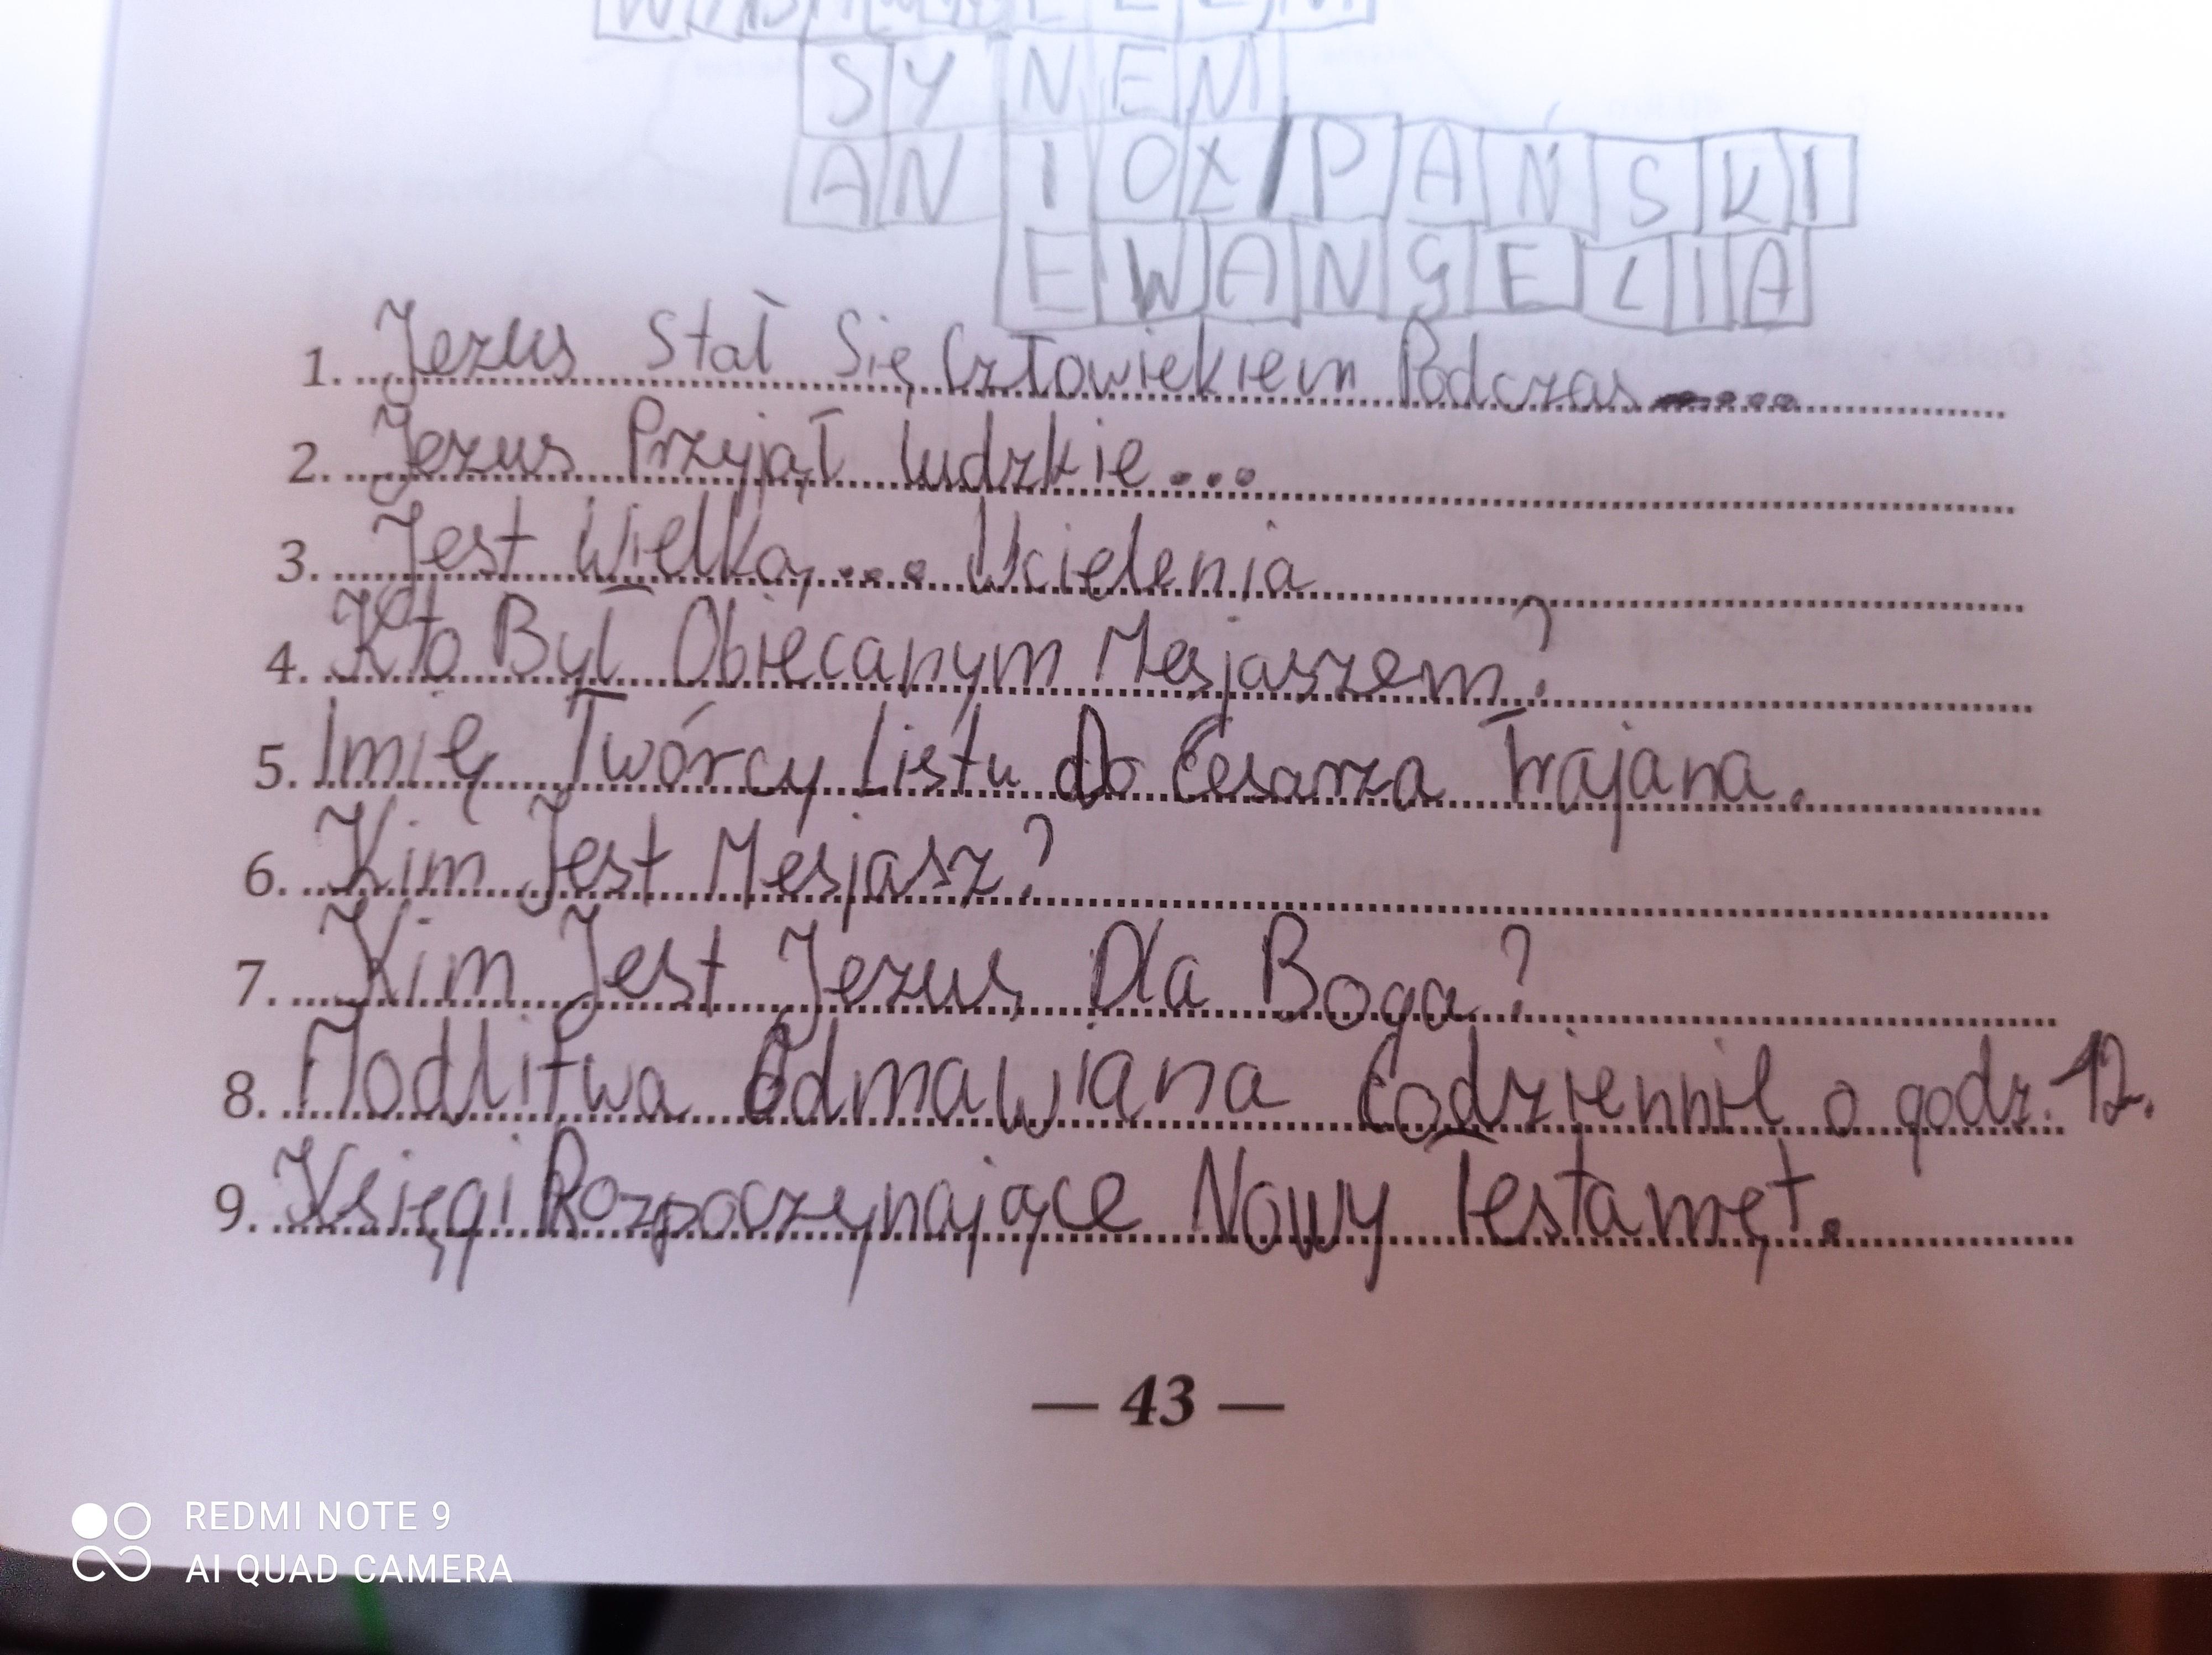 SYNEM
ANIOŁ PAŃSKI
EWANGELIA
1. Jezus Stał Się Człowiekiem Podczas ....
2. Jezus Przyjął ludzkie...
3. Jest Wielką ... Wcielenia
4. Kto Był Obiecanym Mesjaszem?
5. Imię Twórcy Listu do Cesarza Trajana.
6. Kim Jest Mesjasz?
7. Kim Jest Jezus Dla Boga?
8. Modlitwa Odmawiana Codziennie o godz. 12.
9. Księgi Rozpoczynające Nowy Testamęt.
— 43 —
REDMI NOTE 9
AI QUAD CAMERA